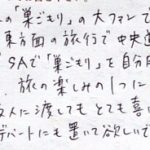 の「巣ごもり」の大ファンで
東方面の旅行で中央道
SAで「巣ごもり」を自分用
旅の楽しみの1つに
友人に渡してもとても喜
デパートにも置いて欲しいで